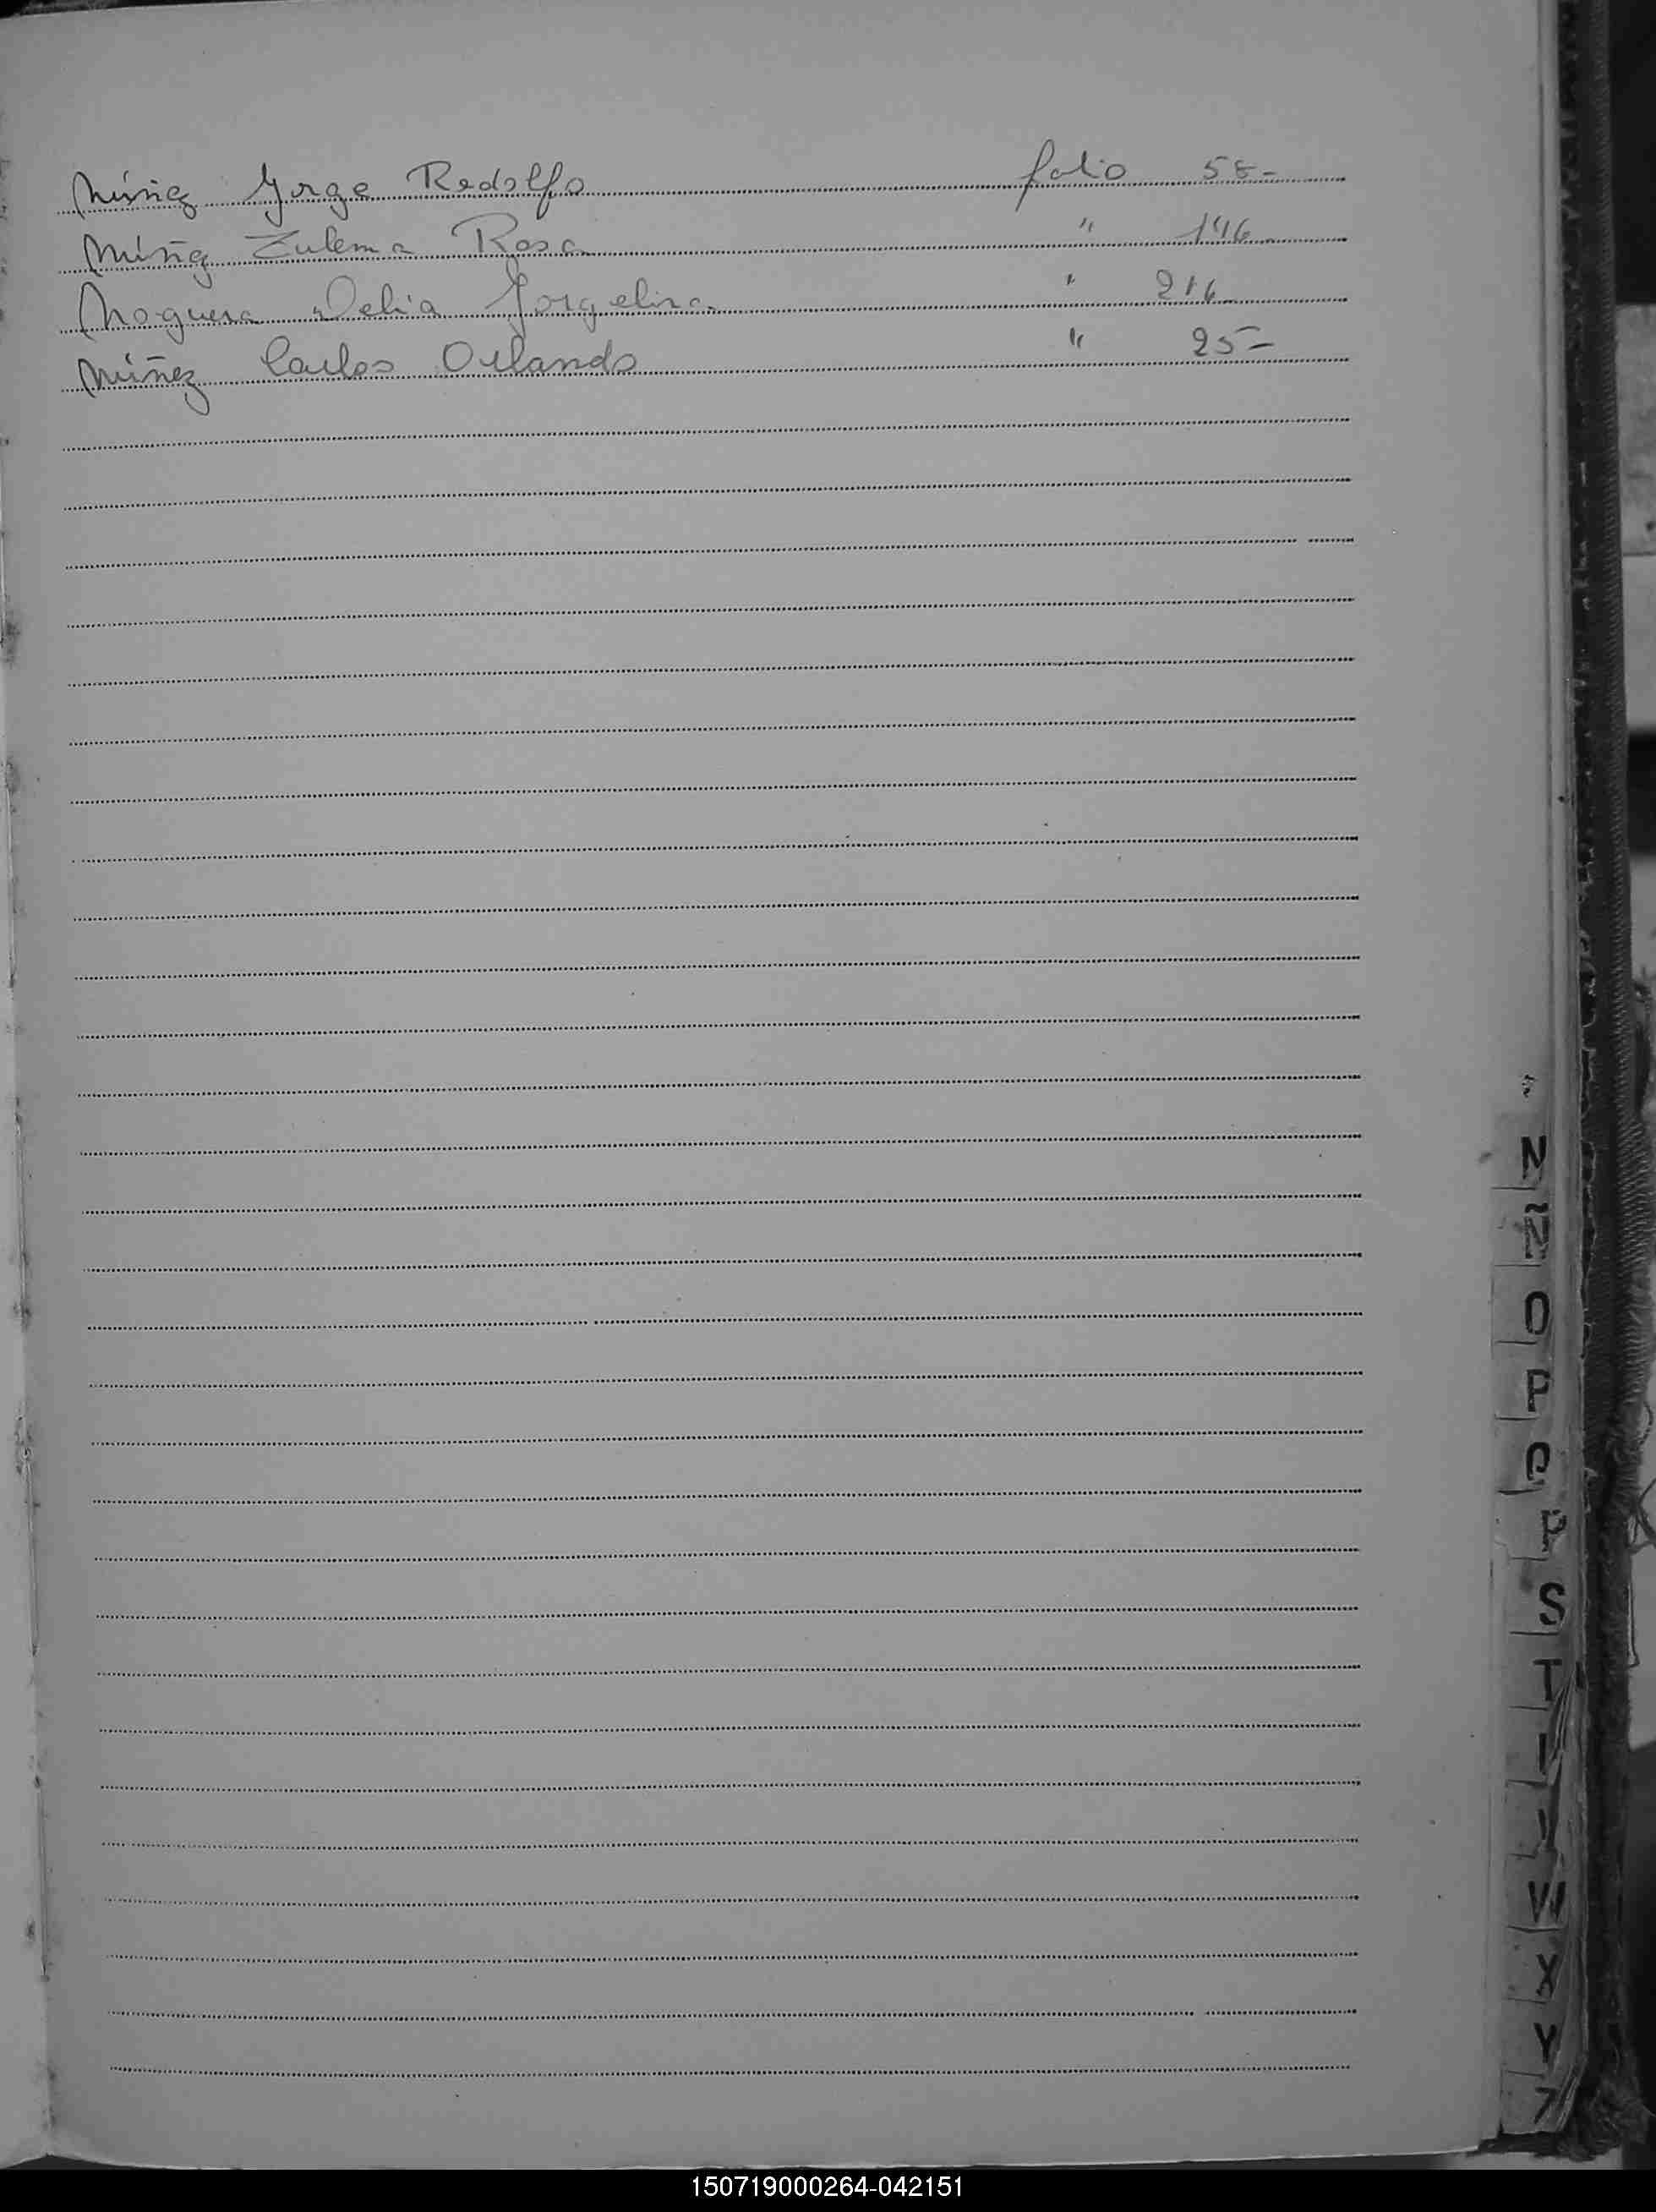 Núñez Jorge Rodolfo folio 58-
Núñez Zulema Rosa " 146
Noguera Delia Jorgelina " 216
Núñez Carlos Orlando " 25-
N
Ñ
O
P
Q
R
S
T
W
X
Y
Z
150719000264-042151